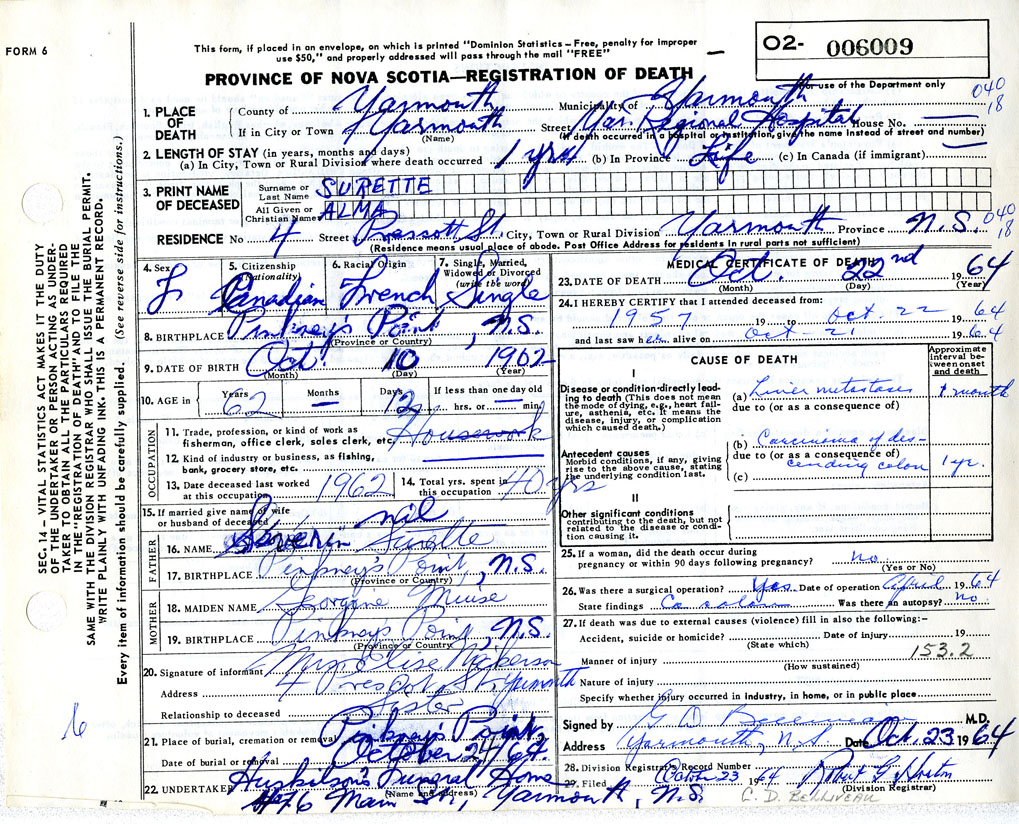 FORM 6
This form, if placed in an envelope, on which is printed "Dominion Statistics – Free, penalty for improper
use $50," and properly addressed will pass through the mail "FREE"
02- 006009
For use of the Department only
PROVINCE OF NOVA SCOTIA—REGISTRATION OF DEATH
040
18
1. PLACE OF DEATH
County of Yarmouth Municipality of Yarmouth
If in City or Town Yarmouth Street Yar. Regional Hospital House No.
(Name) (If death occurred in a hospital or institution, give the name instead of street and number)
2. LENGTH OF STAY (in years, months and days)
(a) In City, Town or Rural Division where death occurred 1 yrs (b) In Province Life (c) In Canada (if immigrant)
3. PRINT NAME OF DECEASED
Surname or Last Name SURETTE
All Given or Christian Names ALMA
040
18
RESIDENCE No 4 Street St. City, Town or Rural Division Yarmouth Province N.S.
(Residence means usual place of abode. Post Office Address for residents in rural parts not sufficient)
4. Sex F
5. Citizenship (Nationality) Canadian
6. Racial Origin French
7. Single, Married, Widowed or Divorced (write the word) Single
8. BIRTHPLACE Pinkney's Point, N.S.
(Province or Country)
9. DATE OF BIRTH Oct. 10 1902
(Month) (Day) (Year)
10. AGE in Years 62 Months Days 12 If less than one day old
hrs. or min.
OCCUPATION
11. Trade, profession, or kind of work as
fisherman, office clerk, sales clerk, etc. Housework
12. Kind of industry or business, as fishing,
bank, grocery store, etc.
13. Date deceased last worked
at this occupation 1962
14. Total yrs. spent in
this occupation 40 yrs
15. If married give name of wife
or husband of deceased nil
FATHER
16. NAME Severin Surette
17. BIRTHPLACE Pinkney's Point, N.S.
(Province or Country)
MOTHER
18. MAIDEN NAME Georgine Muise
19. BIRTHPLACE Pinkneys Point, N.S.
(Province or Country)
20. Signature of informant Mrs. Elise Nickerson
Address 4 Prescott St. Yarmouth
Relationship to deceased Sister
21. Place of burial, cremation or removal Pinkney's Point
Date of burial or removal October 24/64.
22. UNDERTAKER Huskilson's Funeral Home
(Name and address)
#46 Main St., Yarmouth, N.S.
MEDICAL CERTIFICATE OF DEATH
23. DATE OF DEATH Oct. 22nd 1964
(Month) (Day) (Year)
24. I HEREBY CERTIFY that I attended deceased from:
1957 19 to Oct-22 1964
and last saw her alive on Oct-21 1964
CAUSE OF DEATH
Approximate interval between onset and death
I
Disease or condition directly leading to death (This does not mean the mode of dying, e.g., heart failure, asthenia, etc. It means the disease, injury, or complication which caused death.)
(a) Liver metastases 1 month
due to (or as a consequence of)
Antecedent causes
Morbid conditions, if any, giving rise to the above cause, stating the underlying condition last.
(b) Carcinoma of des-
due to (or as a consequence of)
cending colon 1 yr.
(c)
II
Other significant conditions
contributing to the death, but not related to the disease or condition causing it.
25. If a woman, did the death occur during
pregnancy or within 90 days following pregnancy? no.
(Yes or No)
26. Was there a surgical operation? Yes. Date of operation April 1964
State findings Ca colon Was there an autopsy? no.
27. If death was due to external causes (violence) fill in also the following:-
Accident, suicide or homicide? Date of injury 19
(State which)
153.2
Manner of injury
(How sustained)
Nature of injury
Specify whether injury occurred in industry, in home, or in public place
Signed by G D Belliveau M.D.
Address Yarmouth, N.S. Date Oct. 23 1964
28. Division Registrar's Record Number
29. Filed October 23 1964 Robert G Horton
(Division Registrar)
C. D. BELLIVEAU
SEC. 14 – VITAL STATISTICS ACT MAKES IT THE DUTY
OF THE UNDERTAKER OR PERSON ACTING AS UNDER-
TAKER TO OBTAIN ALL THE PARTICULARS REQUIRED
IN THE "REGISTRATION OF DEATH" AND TO FILE THE
SAME WITH THE DIVISION REGISTRAR WHO SHALL ISSUE THE BURIAL PERMIT.
WRITE PLAINLY WITH UNFADING INK. THIS IS A PERMANENT RECORD.
Every item of information should be carefully supplied. (See reverse side for instructions.)